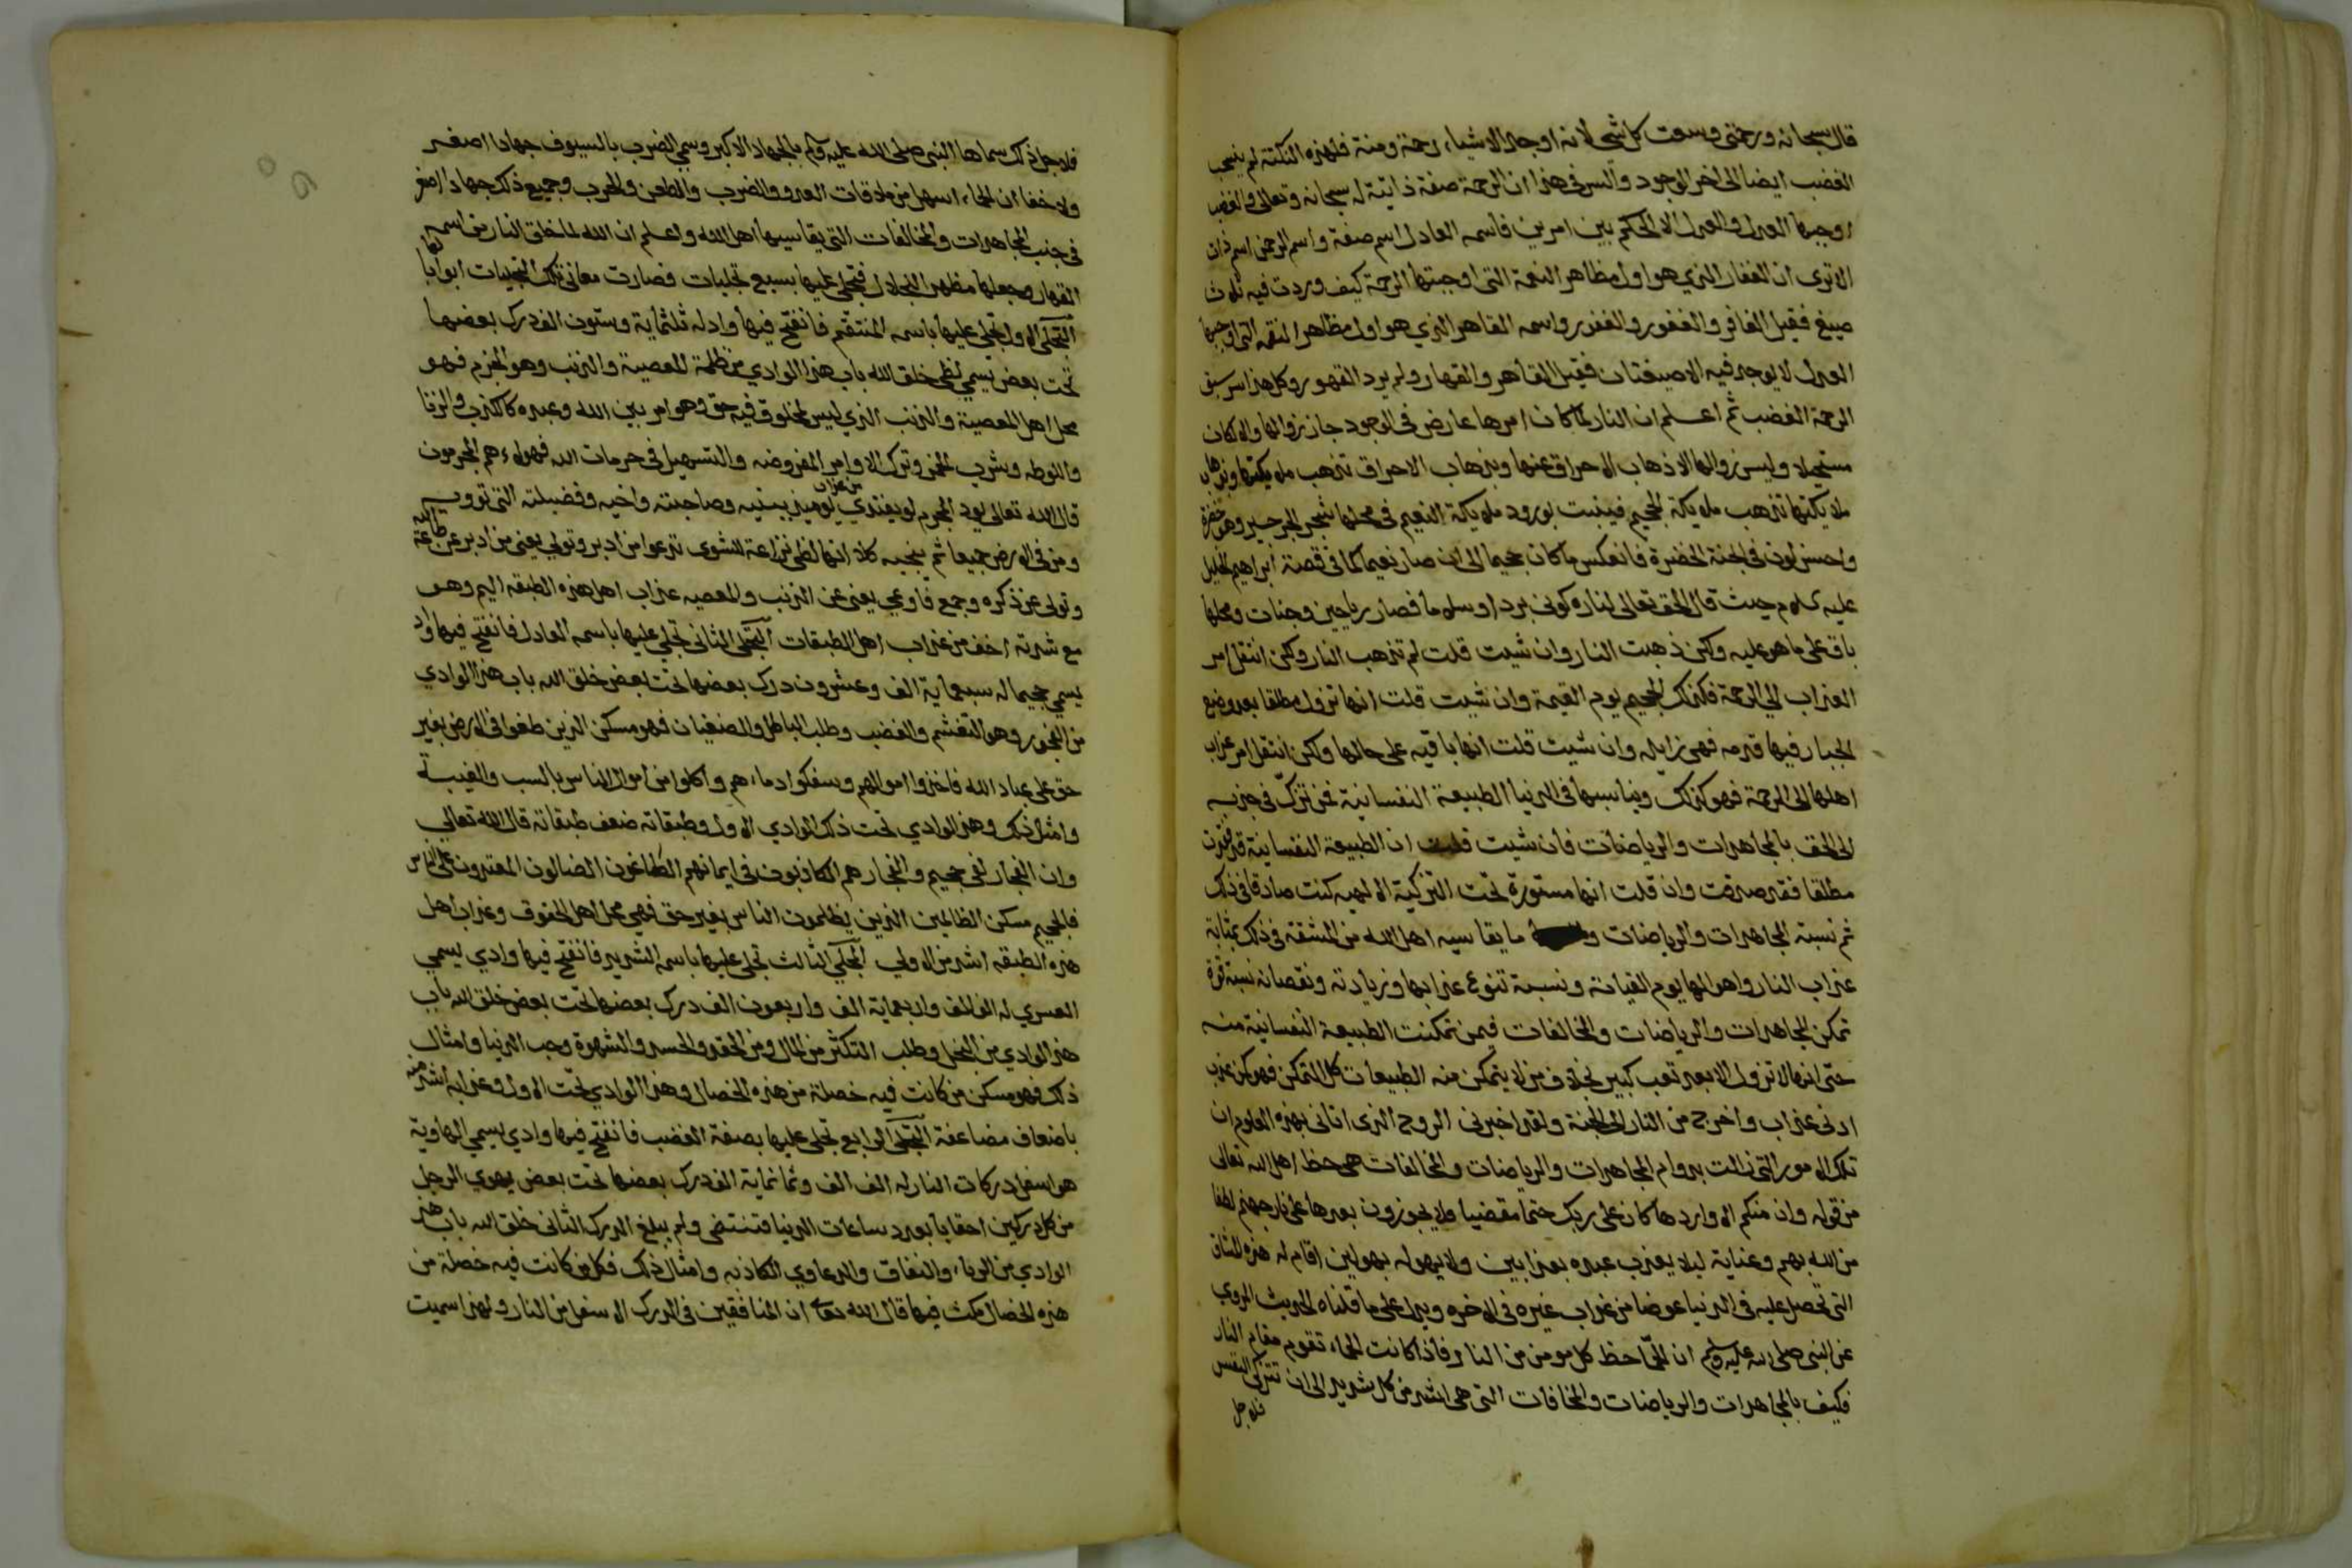 قال سبحانه ورحمتي وسعت كل شي لانه اوجد الاشياء رحمة ومنة فلهذه النكتة لم ينسحب
الغضب ايضا الى اخر الوجود والسر في هذا ان الرحمة صفة ذاتية له سبحانه وتعالى والغضب
اوجبها العدل والعدل الا لحكم بين امرين فاسمه العادل اسم صفة واسم الرحمن اسم ذات
الا ترى ان الغفار الذي هو اول مظاهر النعمة التي اوجبتها الرحمة كيف وردت فيه ثلاث
صيغ فقيل الغافر والغفور والغفار واسمه القاهر الذي هو اول مظاهر النقمه التي اوجبها
العدل لا يوجد فيه الا صيغتان فقيل القاهر والقهار ولم يرد القهور وكل هذا سر سبق
الرحمة الغضب ثم اعلم ان النار لما كان امرها عارض في الوجود جاز زوالها والا لكان
مستحيلا وليس زوالها الا ذهاب الاحراق عنها وبذهاب الاحراق تذهب ملايكتها وبذهاب
ملايكتها تذهب ملايكة الجحيم فينبت بورود ملايكة النعيم في محلها شجر الجرجير وهو خضرة
واحسن لون في الجنة الخضرة فانعكس ما كان جحيما الى ان صار نعيما كما في قصة ابراهيم الخليل
عليه السلام حيث قال الحق تعالى لناره كوني بردا وسلاما فصار رياحين وجنات ومحلها
باق على ما هو عليه ولكن ذهبت النار وان شيت قلت لم تذهب النار ولكن انتقل امر
العذاب الي الرحمة فكذلك الجحيم يوم القيمة وان شيت قلت انها تزول مطلقا بعد وضع
الجبار فيها قدمه فهي زايله وان شيت قلت انها باقيه على حالها ولكن انتقل امر عذاب
اهلها الى الرحمة فهو كذلك ويناسبها في الدنيا الطبيعة النفسانية فمن تزكّى في جذبه
الى الحق بالمجاهدات والرياضات فان شيت قلت ان الطبيعة النفسانية قد فقدت
مطلقا فقد صدقت وان قلت انها مستورة تحت التزكية الالهيه كنت صادقا في ذلك
ثم نسبة المجاهدات والرياضات و ما يقاسيه اهل الله من المشقة في ذلك بمثابة
عذاب النار واهوالها يوم القيامة ونسبة تنوع عذابها وزيادته ونقصانه نسبة قوة
تمكن المجاهدات والرياضات والمخالفات فيمن تمكنت الطبيعة النفسانية منه
حتى انها لا تزول الا بعد تعب كبير بخلاف من لا يتمكن منه الطبيعات كل التمكن فهو كمن عذب
ادنى عذاب واخرج من النار الى الجنة ولقد اخبرني الروح الذي اتاني بهذه العلوم ان
تلك الامور التي زالت بدوام المجاهدات والرياضات والمخالفات هي حظ اهل الله تعالى
من قوله وان منكم الا واردها كان على ربك حتما مقضيا ولا يجوزون بعدها على نار جهنم لطفا
من الله بهم وعناية ليلا يعذب عبده بعذابين ولا يهوله بهولين اقام له هذه المشاق
التي تحصل عليه في الدنيا عوضا من عذاب غيره في الاخره ويدل على ما قلناه الحديث المروي
عن النبي صلى الله عليه وسلم ان الحمّا حظ كل مومن من النار فاذا كانت الحمّاء تقوم مقام النار
فكيف بالمجاهدات والرياضات والمخالفات التي هي اشد من كل شديد الى ان تتزكى النفس
فلاجل
فلاجل ذلك سماها النبي صلى الله عليه وسلم بالجهاد الاكبر وسمي الضرب بالسيوف جهادا اصغر
ولا خفا ان الحماء اسهل من ملاقات العدو والضرب والطعن والحرب وجميع ذلك جهادا اصغر
في جنب المجاهدات والمخالفات التي يقاسيها اهل الله واعلم ان الله لما خلق النار من اسمه
القهار وجعلها مظهر الجلال فتجلى عليها بسبع تجليات فصارت معاني تلك التجليات ابوابا لها
التجلى الاول تجلى عليها باسمه المنتقم فانفتح فيها واد له ثلثماية وستون الف درك بعضها
تحت بعض تسمي لظى خلق الله باب هذا الوادي من ظلمة المعصية والذنب وهو الجرم فهو
محل اهل المعصية والذنب الذي ليس لمخلوق فيه حق وهو امر بين الله وعبده كالكذب والزنا
واللوطه وشرب الخمر وترك الاوامر المفروضه والتسهيل في حرمات الله فهولاء هم المجرمون
قال الله تعالى يود المجرم لو يفتدي من عذاب يوميذ ببنيه وصاحبته واخيه وفصيلته التي توويه
ومن في الارض جميعا ثم ينجيه كلا انها لظى نزاعة للشوى تدعوا من ادبر وتولي يعني من ادبر عن طاعة الله
وتولى عن ذكره وجمع فاوعي يعني من الذنب والمعصيه عذاب اهل هذه الطبقه اليم وهو
مع شدته اخف من عذاب اهل الطبقات التجلى الثاني تجلى عليها باسمه العادل فانفتح فيها واد
يسمي جحيما له سبعماية الف وعشرون درك بعضها تحت بعض خلق الله باب هذا الوادي
من الفجور وهو التغشم والغضب وطلب الباطل والطغيان فهو مسكن الذين طغوا في الارض بغير
حق على عباد الله فاخذوا اموالهم وسفكوا دماءهم واكلوا من اموال الناس بالسب والغيبة
وامثال ذلك وهذا الوادي تحت ذلك الوادي الاول وطبقاته ضعف طبقاته قال الله تعالي
وان الفجار لفي جحيم والفجار هم الكاذبون في ايمانهم الطاغون الضالون المعتدون على الناس
فالجحيم مسكن الظالمين الذين يظلمون الناس بغير حق فهي محل اهل الحقوق وعذاب اهل
هذه الطبقه اشد من الاولي التجلي الثالث تجلى عليها باسمه الشديد فانفتح فيها وادي يسمي
العسري له الف الف واربعماية الف واربعون الف درك بعضها تحت بعض خلق الله باب
هذا الوادي من البخل وطلب التكثر من المال ومن الحقد والحسد والشهوة وحب الدنيا وامثال
ذلك فهو مسكن من كانت فيه خصلة من هذه الخصال وهذا الوادي تحت الاول وعذابه اشد منه
باضعاف مضاعفة التجلى الرابع تجلى عليها بصفة الغضب فانفتح فيها وادي يسمي الهاوية
هو اسفل دركات النار له الف الف وثمانماية الف درك بعضها تحت بعض يهوي الرجل
من كل دركين احقابا بعدد ساعات الدنيا فتنقضى ولم يبلغ الدرك الثاني خلق الله باب هذا
الوادي من الرياء والنفاق والدعاوي الكاذبه وامثال ذلك فكل من كانت فيه خصلة من
هذه الخصال مكث فيها قال الله تعا ان المنافقين في الدرك الاسفل من النار ولهذا سميت